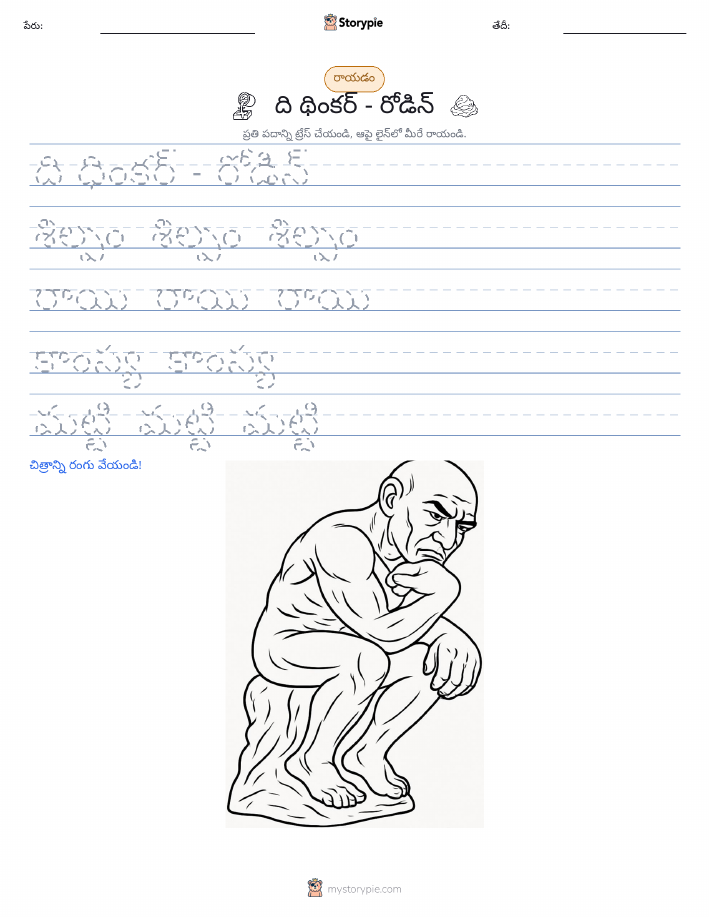 పేరు:
Storypie
తేదీ:
రాయడం
ది థింకర్ - రోడిన్
ప్రతి పదాన్ని ట్రేస్ చేయండి, ఆపై లైన్‌లో మీరే రాయండి.
ది థింకర్ - రోడిన్
శిల్పం శిల్పం శిల్పం
రాయి రాయి రాయి
కాంస్య కాంస్య
మట్టి మట్టి మట్టి
చిత్రాన్ని రంగు వేయండి!
mystorypie.com